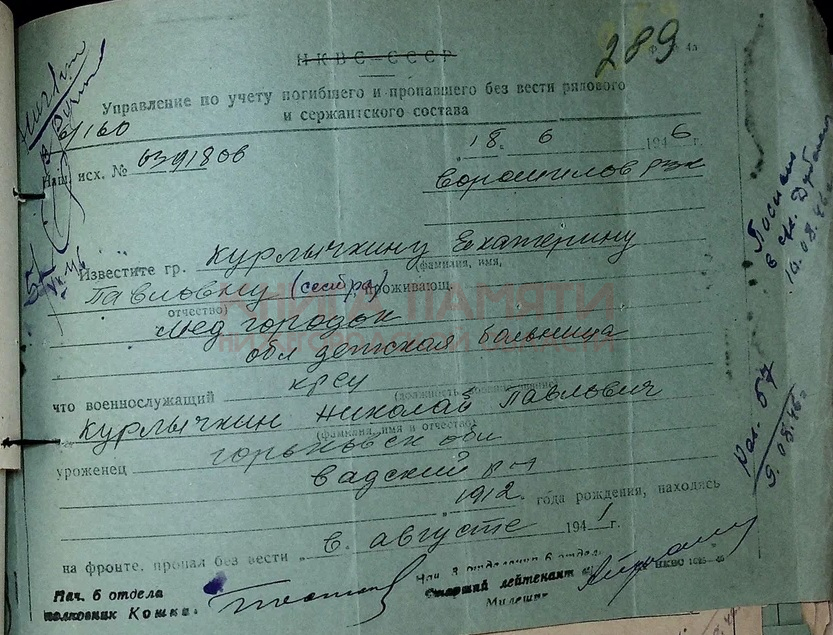 289
НКВС-СССР
Ф. 4а
Управление по учету погибшего и пропавшего без вести рядового
и сержантского состава
6/160
18. 6 1946 г.
Наш исх. № 0391806
Ворошилов рвк
Известите гр. Курлычкину Екатерину
(фамилия, имя,
Павловну (сестра) проживающ
отчество)
Мед городок
обл детская больница
КНИГА ПАМЯТИ
НИЖЕГОРОДСКОЙ ОБЛАСТИ
что военнослужащий кр-ец
(должность, военное звание)
Курлычкин Николай Павлович
(фамилия, имя и отчество)
уроженец горьковск обл
Вадский р-н
1912 года рождения, находясь
на фронте, пропал без вести в августе 1941 г.
Нач. 6 отдела
полковник Кошки
Нач. 3 отделения 6 отдел
Старший лейтенант
Милешин
НКВС
Послан
10.08.46 г
Раз. 57
9.08.46 г